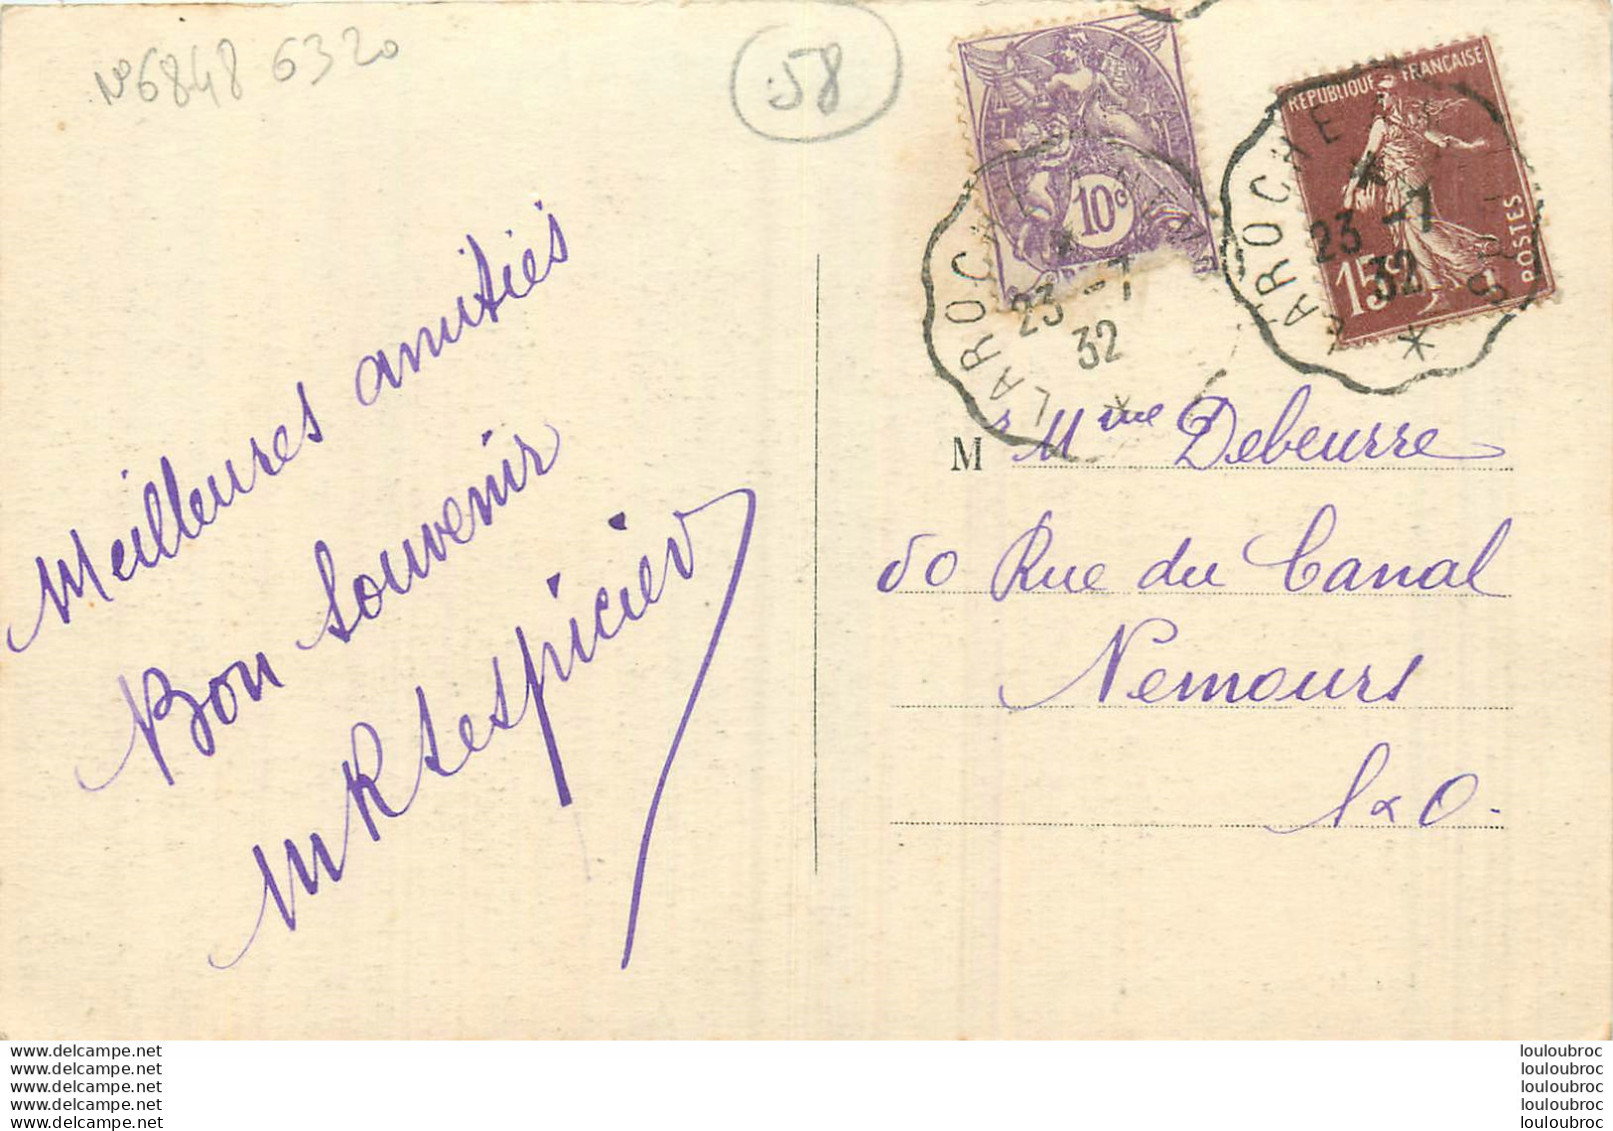 N° 6848 6320
58
10c
RÉPUBLIQUE FRANÇAISE
15c
POSTES
LAROCHE
23 -7
32
LAROCHE
23 -7
32
Meilleures amitiés
Bon Souvenir
M Mme Debeurre
60 Rue du Canal
Nemours
S & O.
www.delcampe.net
www.delcampe.net
www.delcampe.net
www.delcampe.net
www.delcampe.net
louloubroc
louloubroc
louloubroc
louloubroc
louloubroc